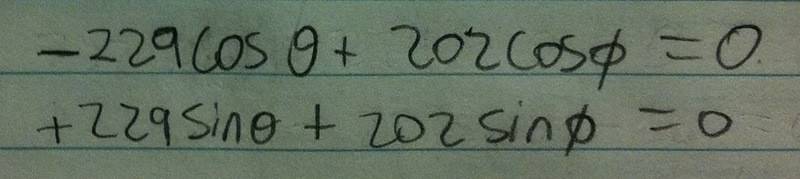 -229cosθ + 202cosϕ = 0.
+229sinθ + 202sinϕ = 0